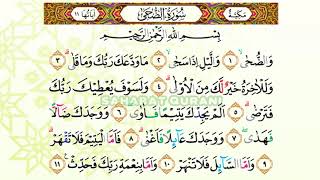 مَكِّيَّة سُورَةُ الضُّحَى آيَاتُهَا ١١
بِسْمِ اللَّهِ الرَّحْمَٰنِ الرَّحِيمِ
وَالضُّحَىٰ ١ وَالَّيْلِ إِذَا سَجَىٰ ٢ مَا وَدَّعَكَ رَبُّكَ وَمَا قَلَىٰ ٣
وَلَلْآخِرَةُ خَيْرٌ لَّكَ مِنَ الْأُولَىٰ ٤ وَلَسَوْفَ يُعْطِيكَ رَبُّكَ
فَتَرْضَىٰ ٥ أَلَمْ يَجِدْكَ يَتِيمًا فَآوَىٰ ٦ وَوَجَدَكَ ضَالًّا
فَهَدَىٰ ٧ وَوَجَدَكَ عَائِلًا فَأَغْنَىٰ ٨ فَأَمَّا الْيَتِيمَ فَلَا تَقْهَرْ
٩ وَأَمَّا السَّائِلَ فَلَا تَنْهَرْ ١٠ وَأَمَّا بِنِعْمَةِ رَبِّكَ فَحَدِّثْ ١١